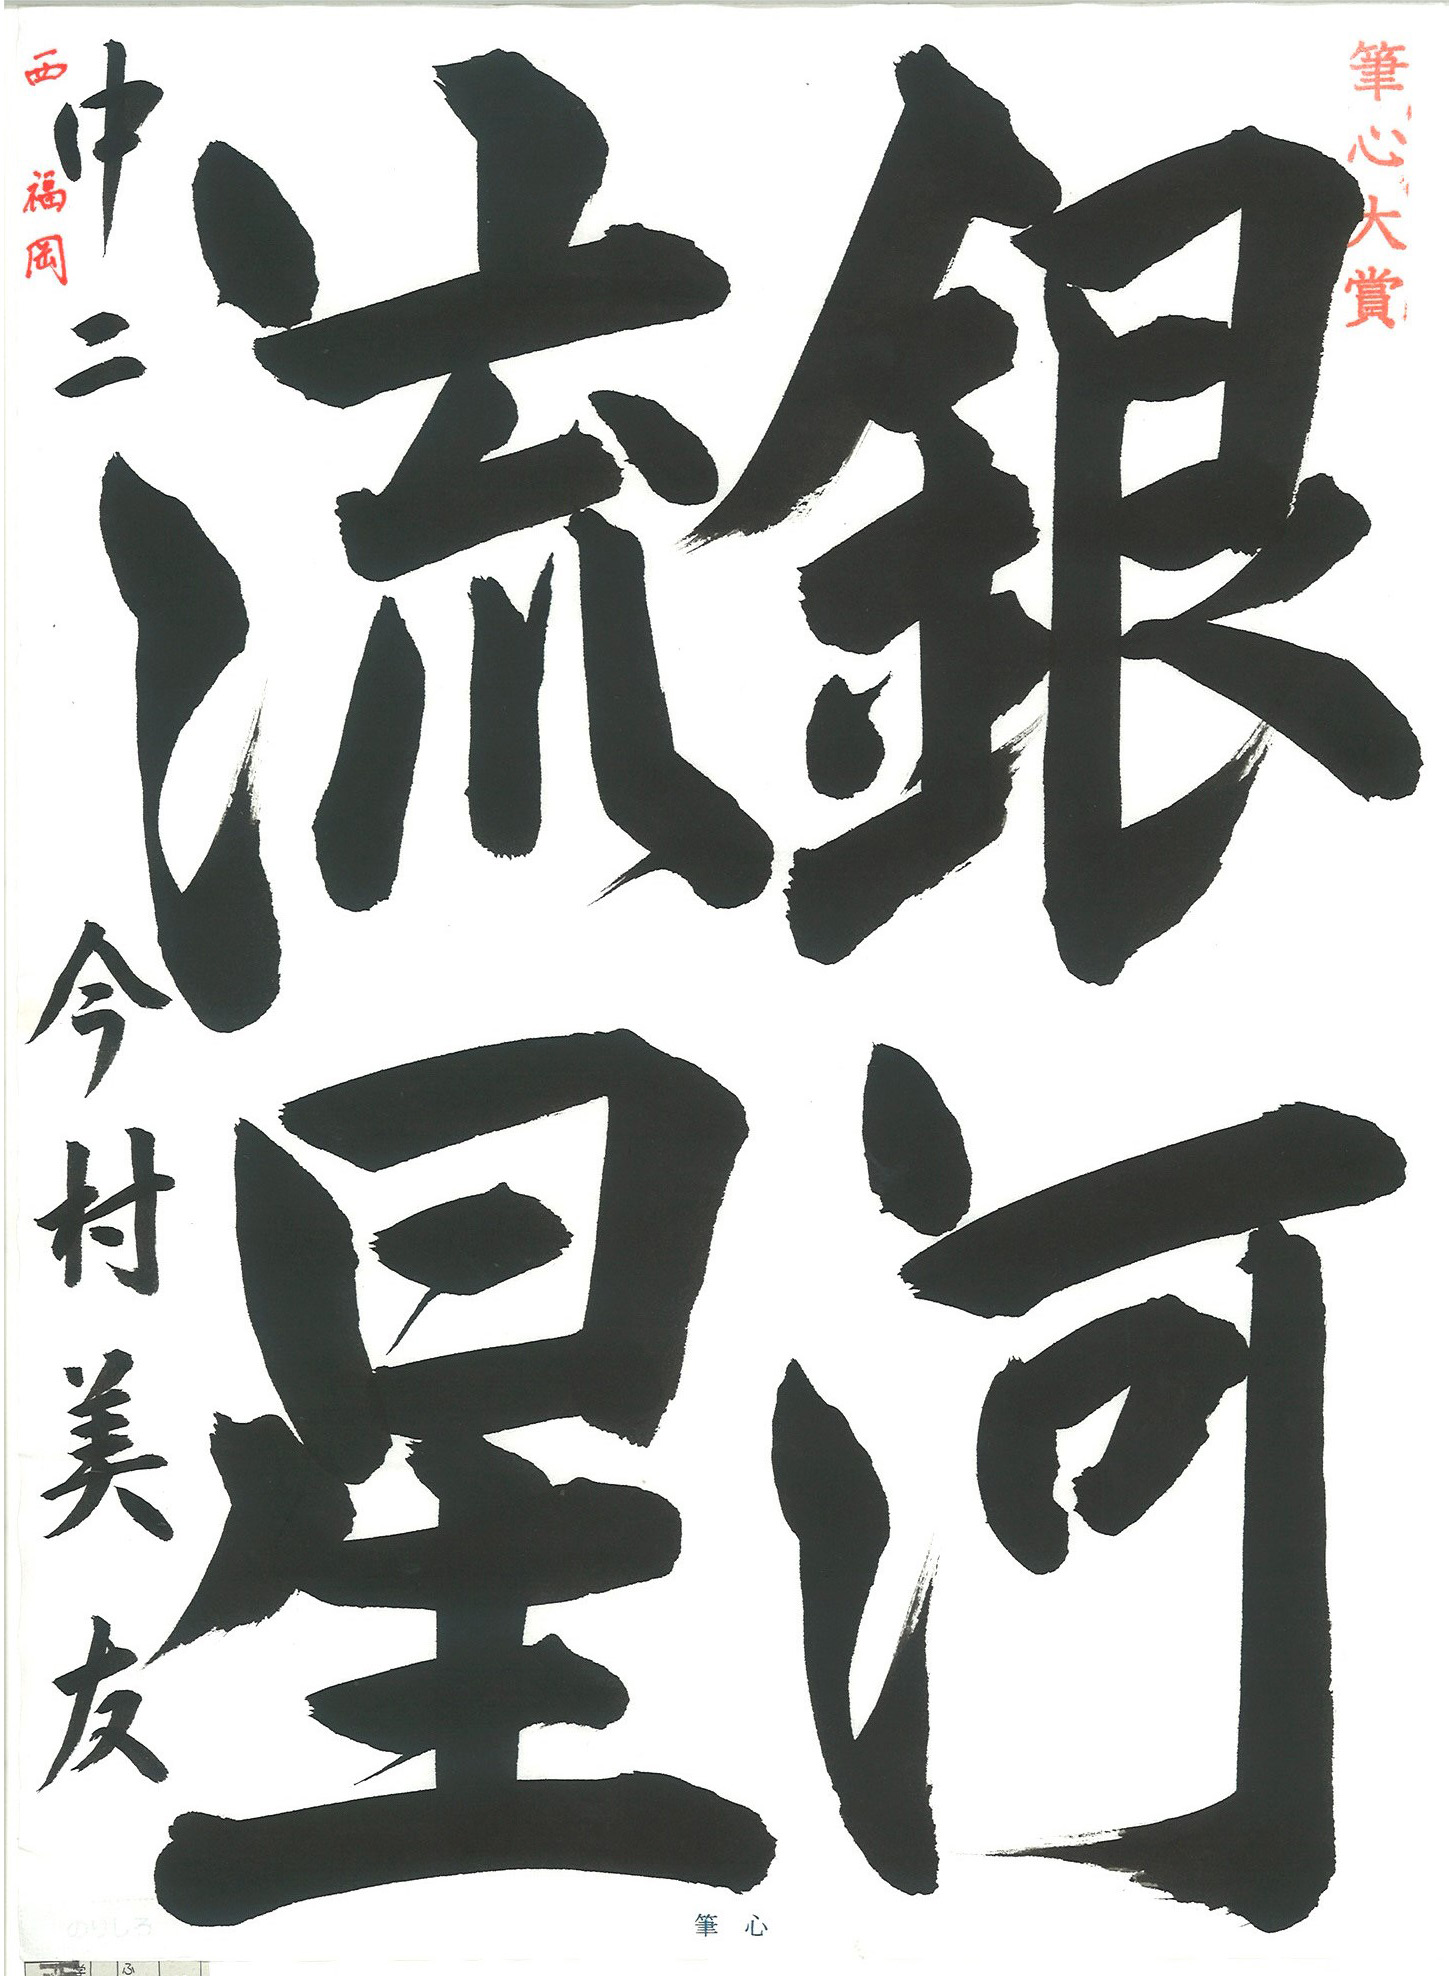 筆心大賞
銀河
流星
中二 今村美友
西 福岡
筆心
のりしろ